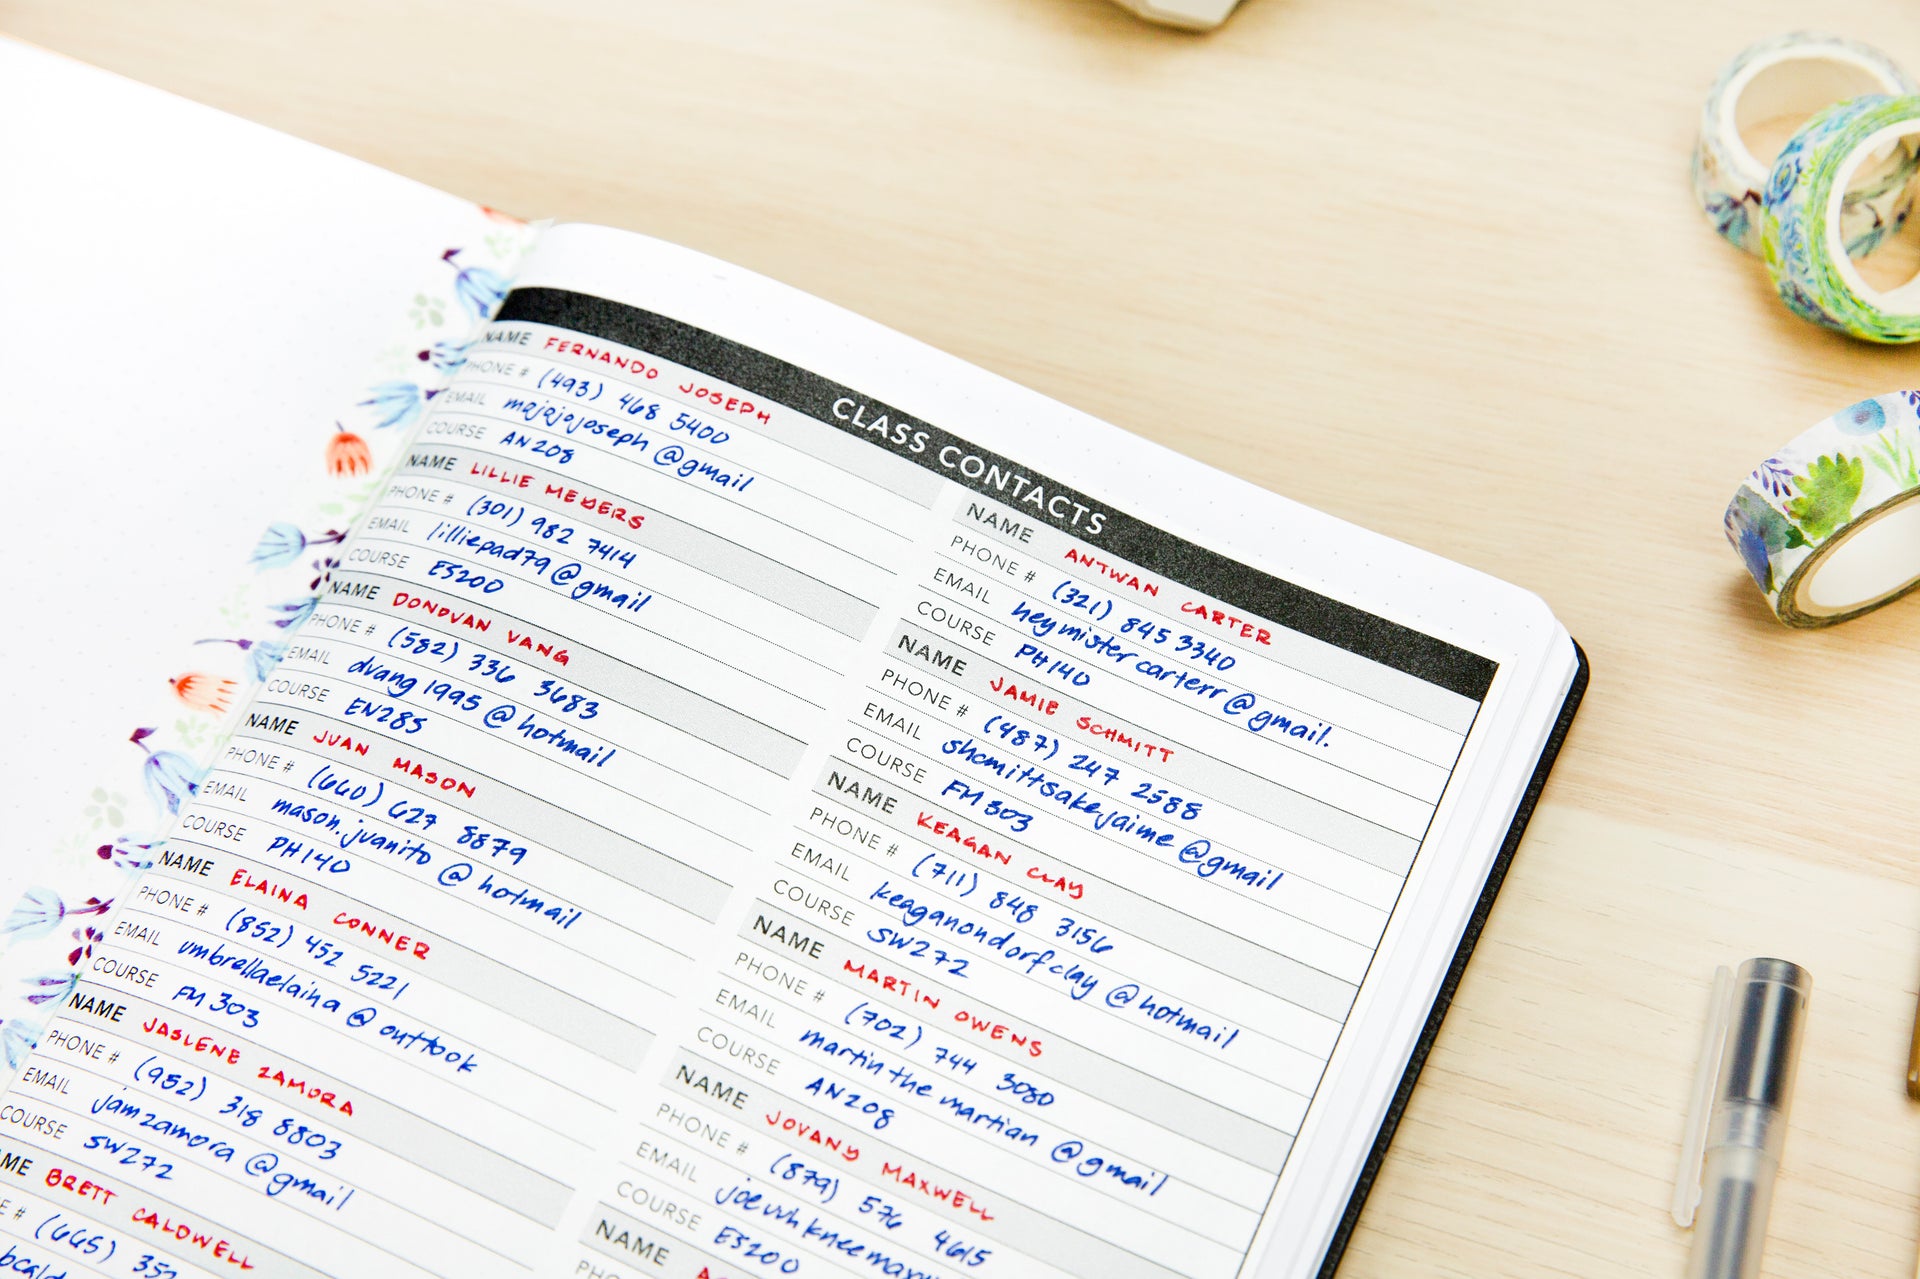 CLASS CONTACTS
NAME FERNANDO JOSEPH
PHONE # (493) 468 5400
EMAIL majajojoseph @gmail
COURSE AN208
NAME LILLIE MEYERS
PHONE # (301) 982 7414
EMAIL lilliepad79@gmail
COURSE ES200
NAME DONOVAN VANG
PHONE # (582) 336 3683
EMAIL dvang1995@hotmail
COURSE EN285
NAME JUAN MASON
PHONE # (660) 627 8879
EMAIL mason.juanito @ hotmail
COURSE PH140
NAME ELAINA CONNER
PHONE # (852) 452 5221
EMAIL umbrellaelaina @ outlook
COURSE FM303
NAME JASLENE ZAMORA
PHONE # (952) 318 8803
EMAIL jamzamora @gmail
COURSE SW272
BRETT CALDWELL
# (665)
NAME ANTWAN CARTER
PHONE # (321) 845 3340
EMAIL heymistercarterr@gmail.
COURSE PH140
NAME JAMIE SCHMITT
PHONE # (487) 247 2588
EMAIL shcmittsakejaime @gmail
COURSE FM303
NAME KEAGAN CLAY
PHONE # (711) 848 3156
EMAIL keaganondorfclay @hotmail
COURSE SW272
NAME MARTIN OWENS
PHONE # (702) 744 3080
EMAIL martinthemartian @gmail
COURSE AN208
NAME JOVANY MAXWELL
PHONE # (879) 576 4615
EMAIL
COURSE ES200
NAME